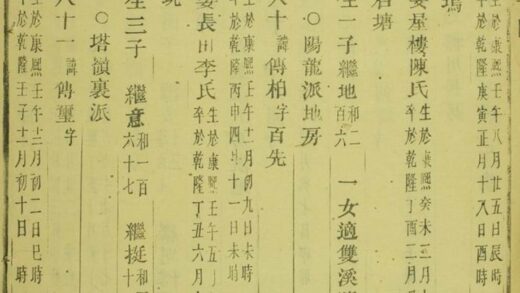 塢
生於康熙壬午八月廿五日辰時
卒於乾隆庚寅正月十八日酉時
娶屋樓陳氏
生於康熙癸未三月
卒於乾隆丁酉二月
生一子 繼地 和二百六 一女適雙溪
石塘
○陽龍派地房
八十 諱傳柏字百先
生於康熙壬午十二月初九日卡時
卒於乾隆丙申四月十一日未時
娶長田李氏
生於康熙壬午五
卒於乾隆丁丑六月
生三子 繼意 和一百六十七 繼挺 和
○塔嶺裏派
八十一 諱傳璽字
於康熙壬午十二月初二日巳時
於乾隆壬子十一月初十日 時